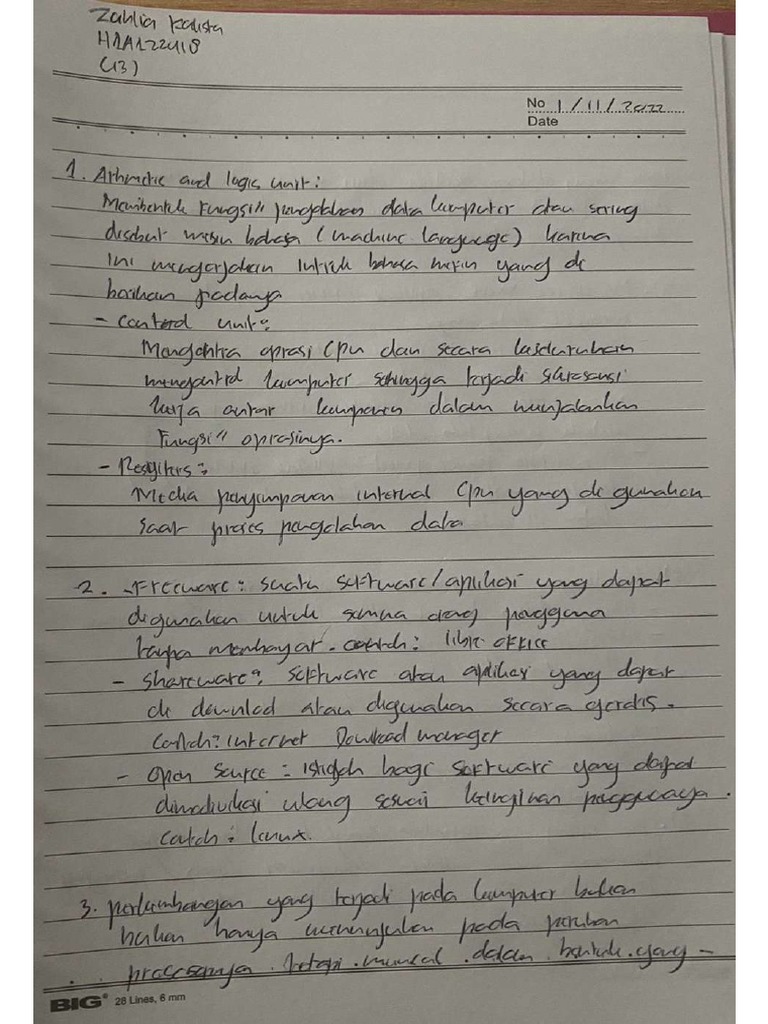 Zahlia Kalista
H1A122418
(13)
No 1/11/2022
Date
1. Arhmetic and logic unit:
Membentuk Fungsi" pengolahan data kumputer dan sering
disebut mesin bahasa (machine language) karina
Ini mengerjakan Intruk bahasa mesin yang di
berikan padanya
- Control unit:
Mengontrol oprasi CPU dan secara keseluruhan
mengontrol kumputer sehingga terjadi
kerja antar kumponen dalam menjalankan
Fungsi" oprasinya.
- Resgiters:
Media penyimpanan internal CPU yang di gunakan
saat proses pengolahan data
2. - Freeware: suatu software/aplikasi yang dapat
digunakan untuk semua orang pengguna
tanpa membayar. contoh: libre office
- Shareware: software atau aplikasi yang dapat
di downlod atau digunakan secara geratis.
Contoh: internet Download manager
- Open Source: istilah bagi software yang dapat
dimodivikasi ulang sesuai keinginan penggunaya.
Contoh: linux.
3. perkumbangan yang terjadi pada kumputer bukan
bukan hanya menunjukan pada
prosesnya. tetapi muncul dalam bentuk yang -
BIG® 28 Lines, 6 mm